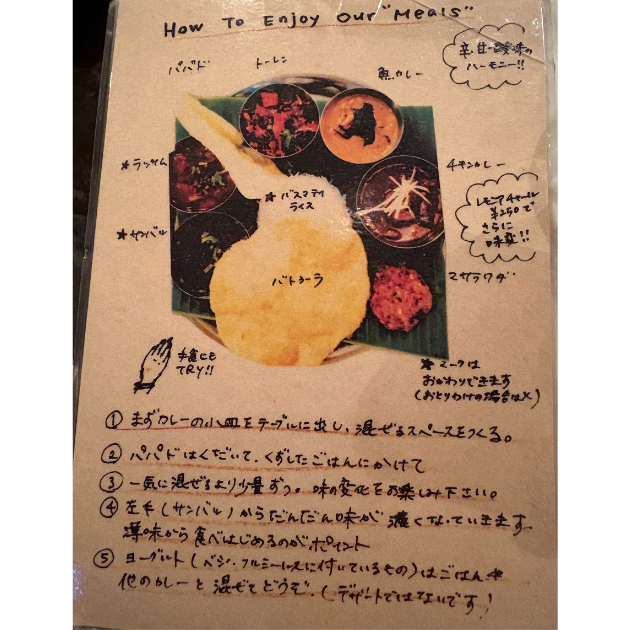 How To Enjoy Our "Meals"
辛・甘・酸味の
ハーモニー!!
パパド
トーレン
魚カレー
★ラッサム
チキンカレー
★バスマティ
ライス
レモンアチャール
¥250で
さらに
味変!!
★サンバル
バトゥーラ
マサラワダ
手食にも
TRY!!
★マークは
おかわりできます
(おとりわけの場合は×)
① まずカレーの小皿をテーブルに出し、混ぜるスペースをつくる。
② パパドはくだいて、くずしたごはんにかけて
③ 一気に混ぜるより少量ずつ。味の変化をお楽しみ下さい。
④ 左手(サンバル)からだんだん味が濃くなっていきます
薄味から食べはじめるのがポイント
⑤ ヨーグルト(ベジ・フルミールスに付いているもの)はごはんや
他のカレーと混ぜてどうぞ。(デザートではないです!